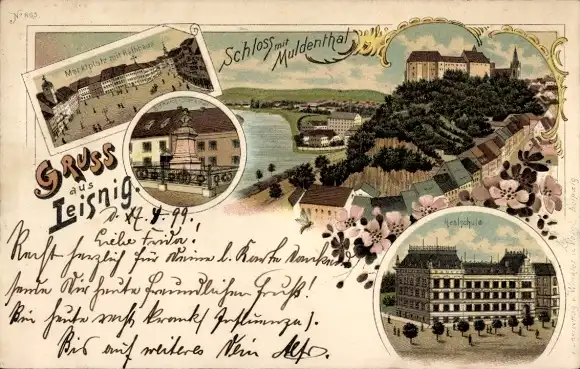 No 863.
Marktplatz mit Rathhaus
Schloss mit
Muldenthal
Realschule
Gruss
aus
Leisnig.
d. 17.4.99.
Liebe Frida!
Recht herzlich für Deine l. Karte dankend
sende Dir heute freundlichen Gruß!
Bin heute recht krank (Influenza).
Bis auf weiteres Dein